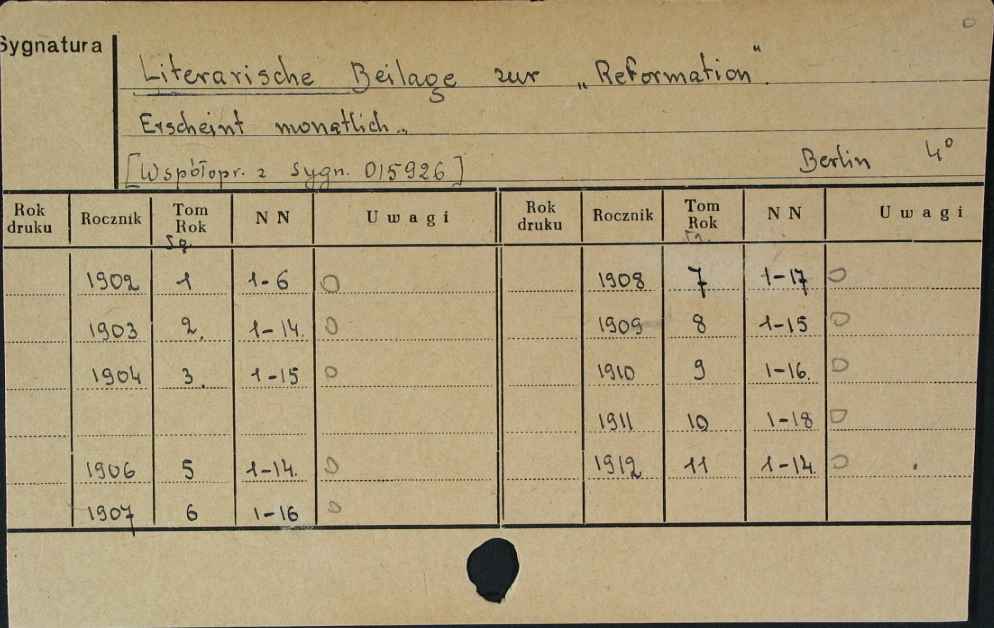 Sygnatura
Literarische Beilage zur „Reformation“.
Erscheint monatlich.
[Współopr. z sygn. 015926] Berlin 4°
Rok druku Rocznik Tom Rok NN Uwagi Rok druku Rocznik Tom Rok NN Uwagi
1902 1 1-6 0 1908 7 1-17 0
1903 2. 1-14. 0 1909 8 1-15 0
1904 3. 1-15 0 1910 9 1-16. 0
1911 10 1-18 0
1906 5 1-14. 0 1912 11 1-14. 0
1907 6 1-16 0